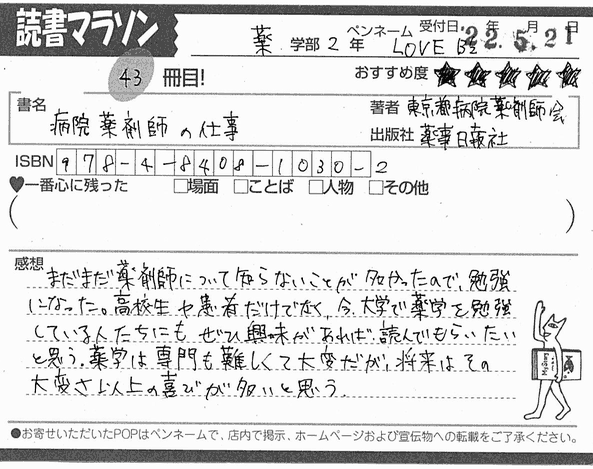 読書マラソン
薬 学部 2 年 ペンネーム LOVE B'z 受付日 22年5月21日
43 冊目! おすすめ度 ★★★★★
書名 病院薬剤師の仕事
著者 東京都病院薬剤師会
出版社 薬事日報社
ISBN 978-4-8408-1030-2
♥一番心に残った □場面 □ことば □人物 □その他
( )
感想
まだまだ薬剤師について知らないことが多かったので、勉強
になった。高校生や患者だけでなく、今、大学で薬学を勉強
している人たちにも ぜひ興味があれば、読んでもらいたい
と思う。薬学は専門も難しくて大変だが、将来はその
大変さ以上の喜びが多いと思う。
●お寄せいただいたPOPはペンネームで、店内で掲示、ホームページおよび宣伝物への転載をご了承ください。